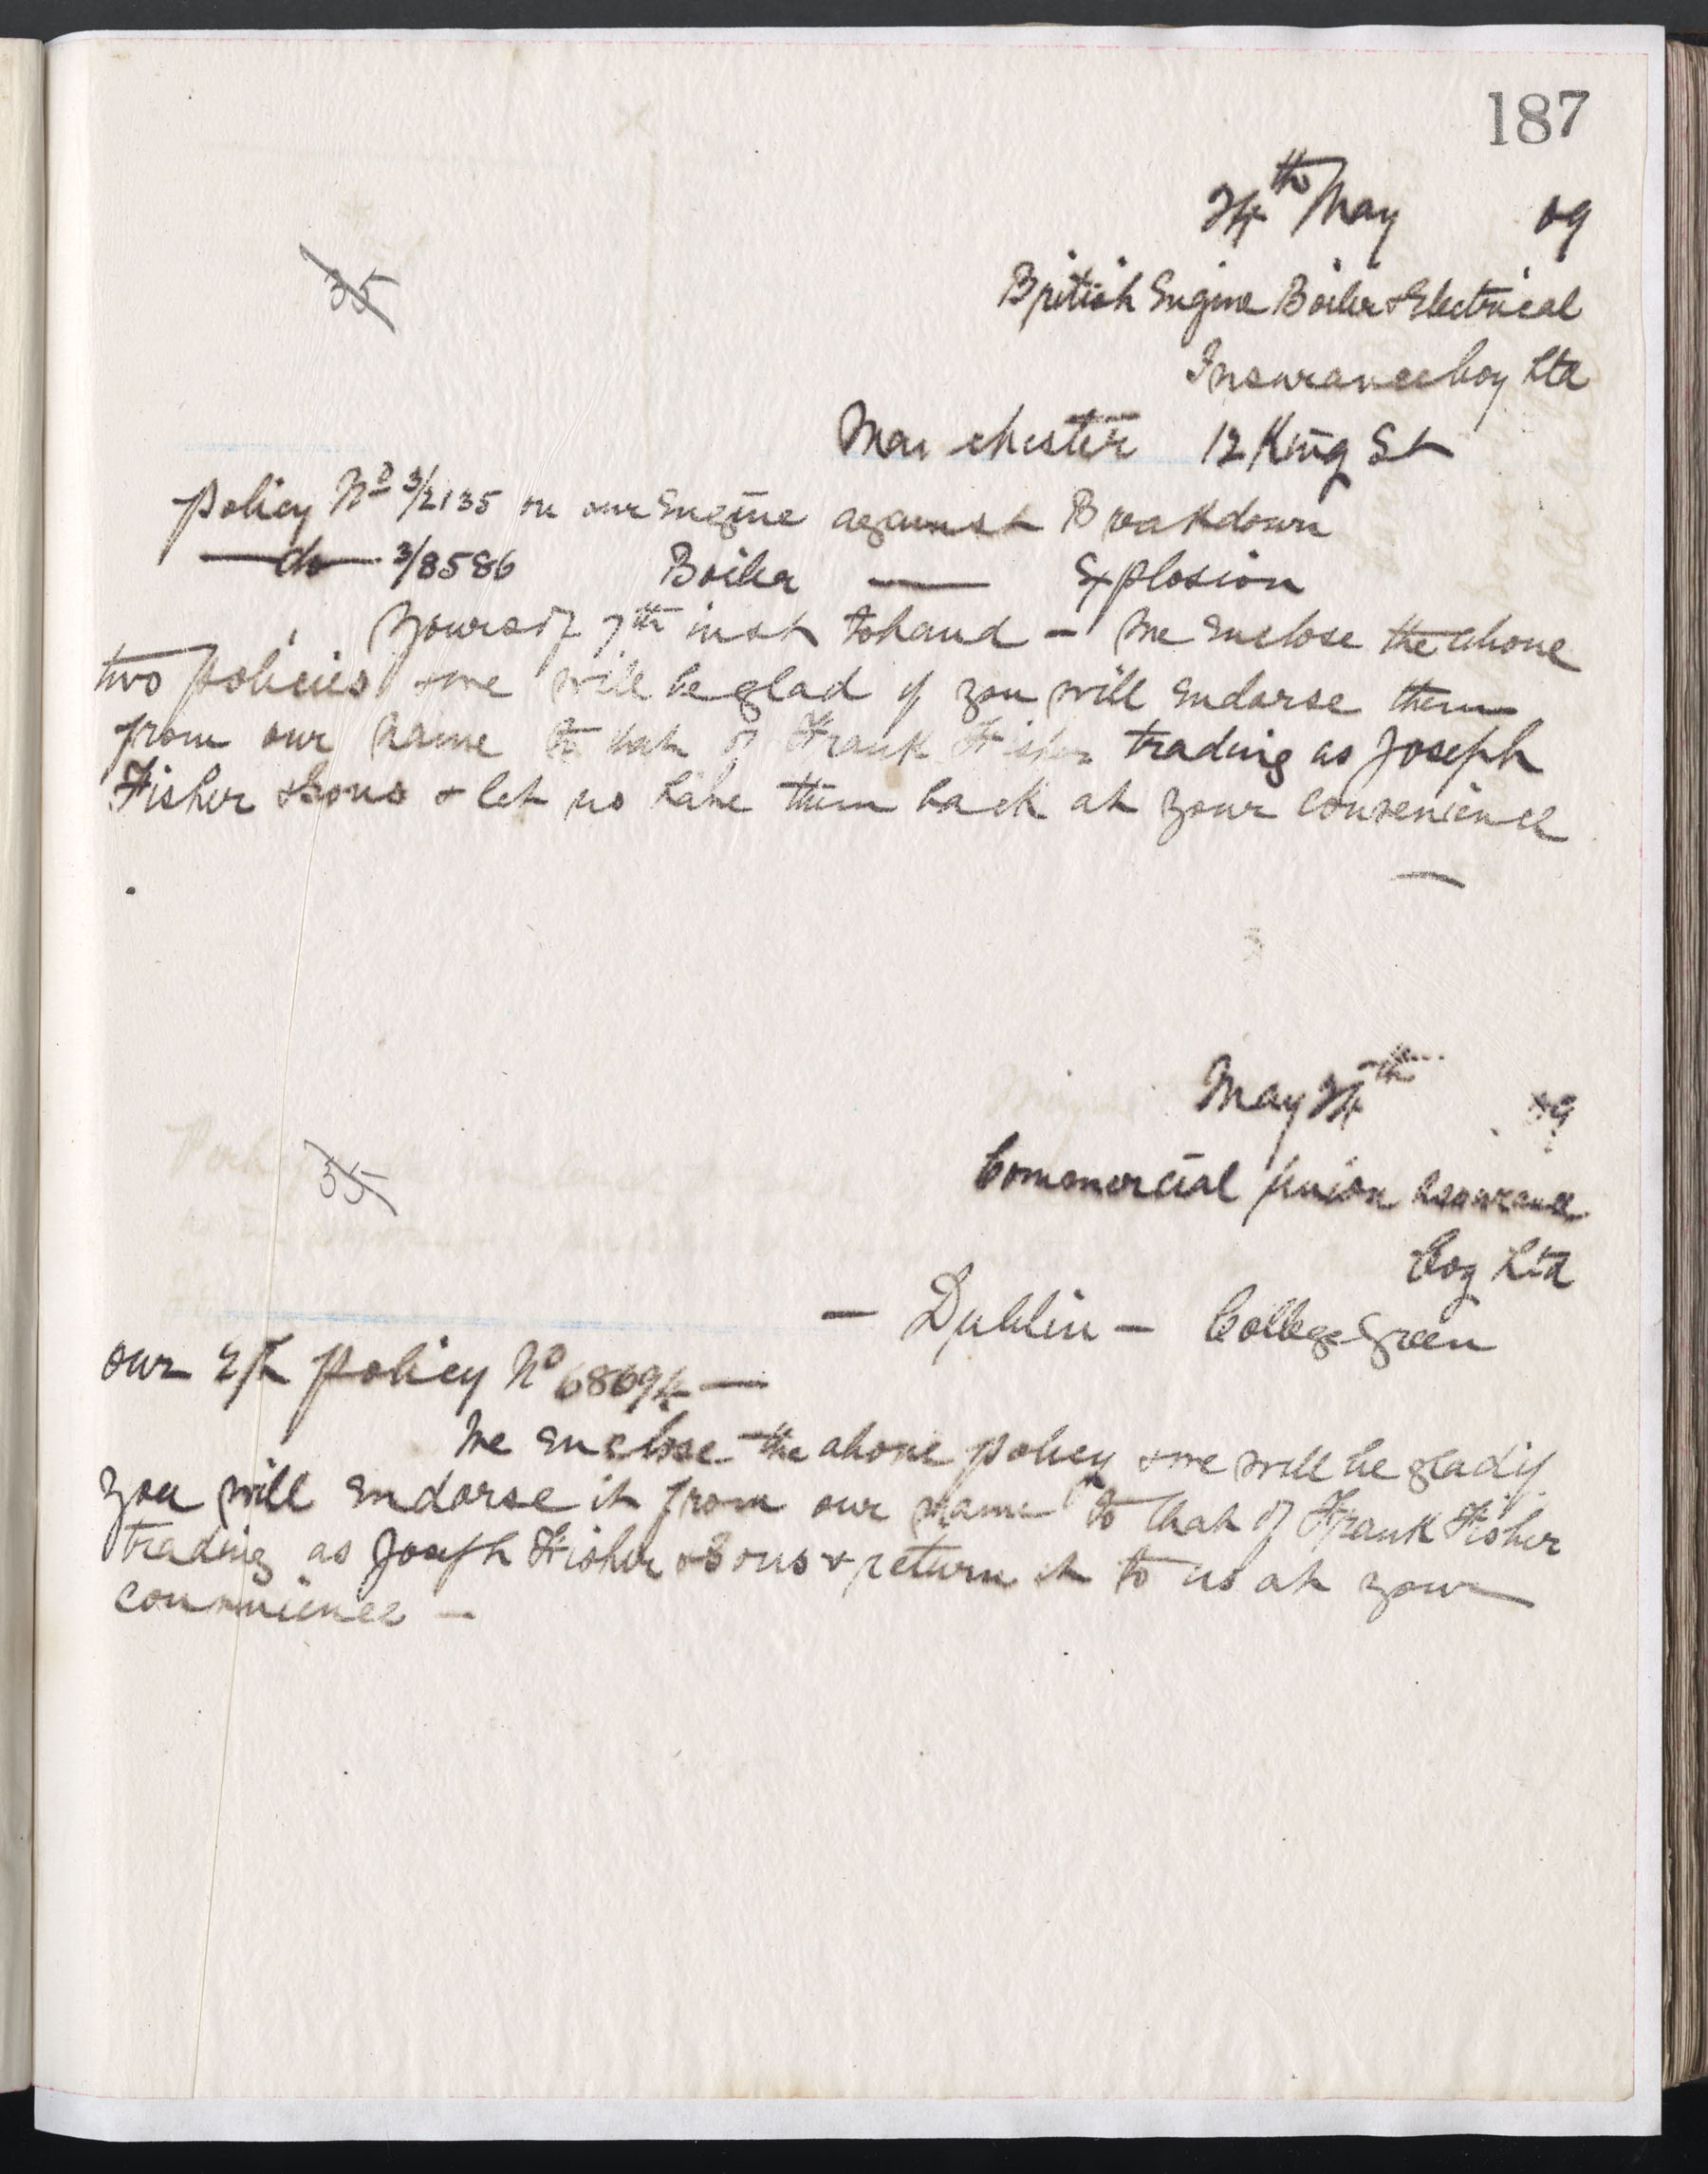 187
24th May 09
35
British Engine Boiler & Electrical
Insurance Coy Ltd
Manchester 12 King St
Policy No 3/2135 on our Engine against Breakdown
—do— 3/8586 Boiler — Explosion
Yours of 7th inst to hand – We enclose the above
two policies & we will be glad if you will endorse them
from our name to that of Frank Fisher trading as Joseph
Fisher & Sons & let us have them back at your convenience
—
May 24th 09
35
Commercial Union Assurance
Coy Ltd
— Dublin — College Green
our policy No 68694 —
We enclose the above policy & we will be glad if
you will endorse it from our name to that of Frank Fisher
trading as Joseph Fisher & Sons & return it to us at your
convenience —